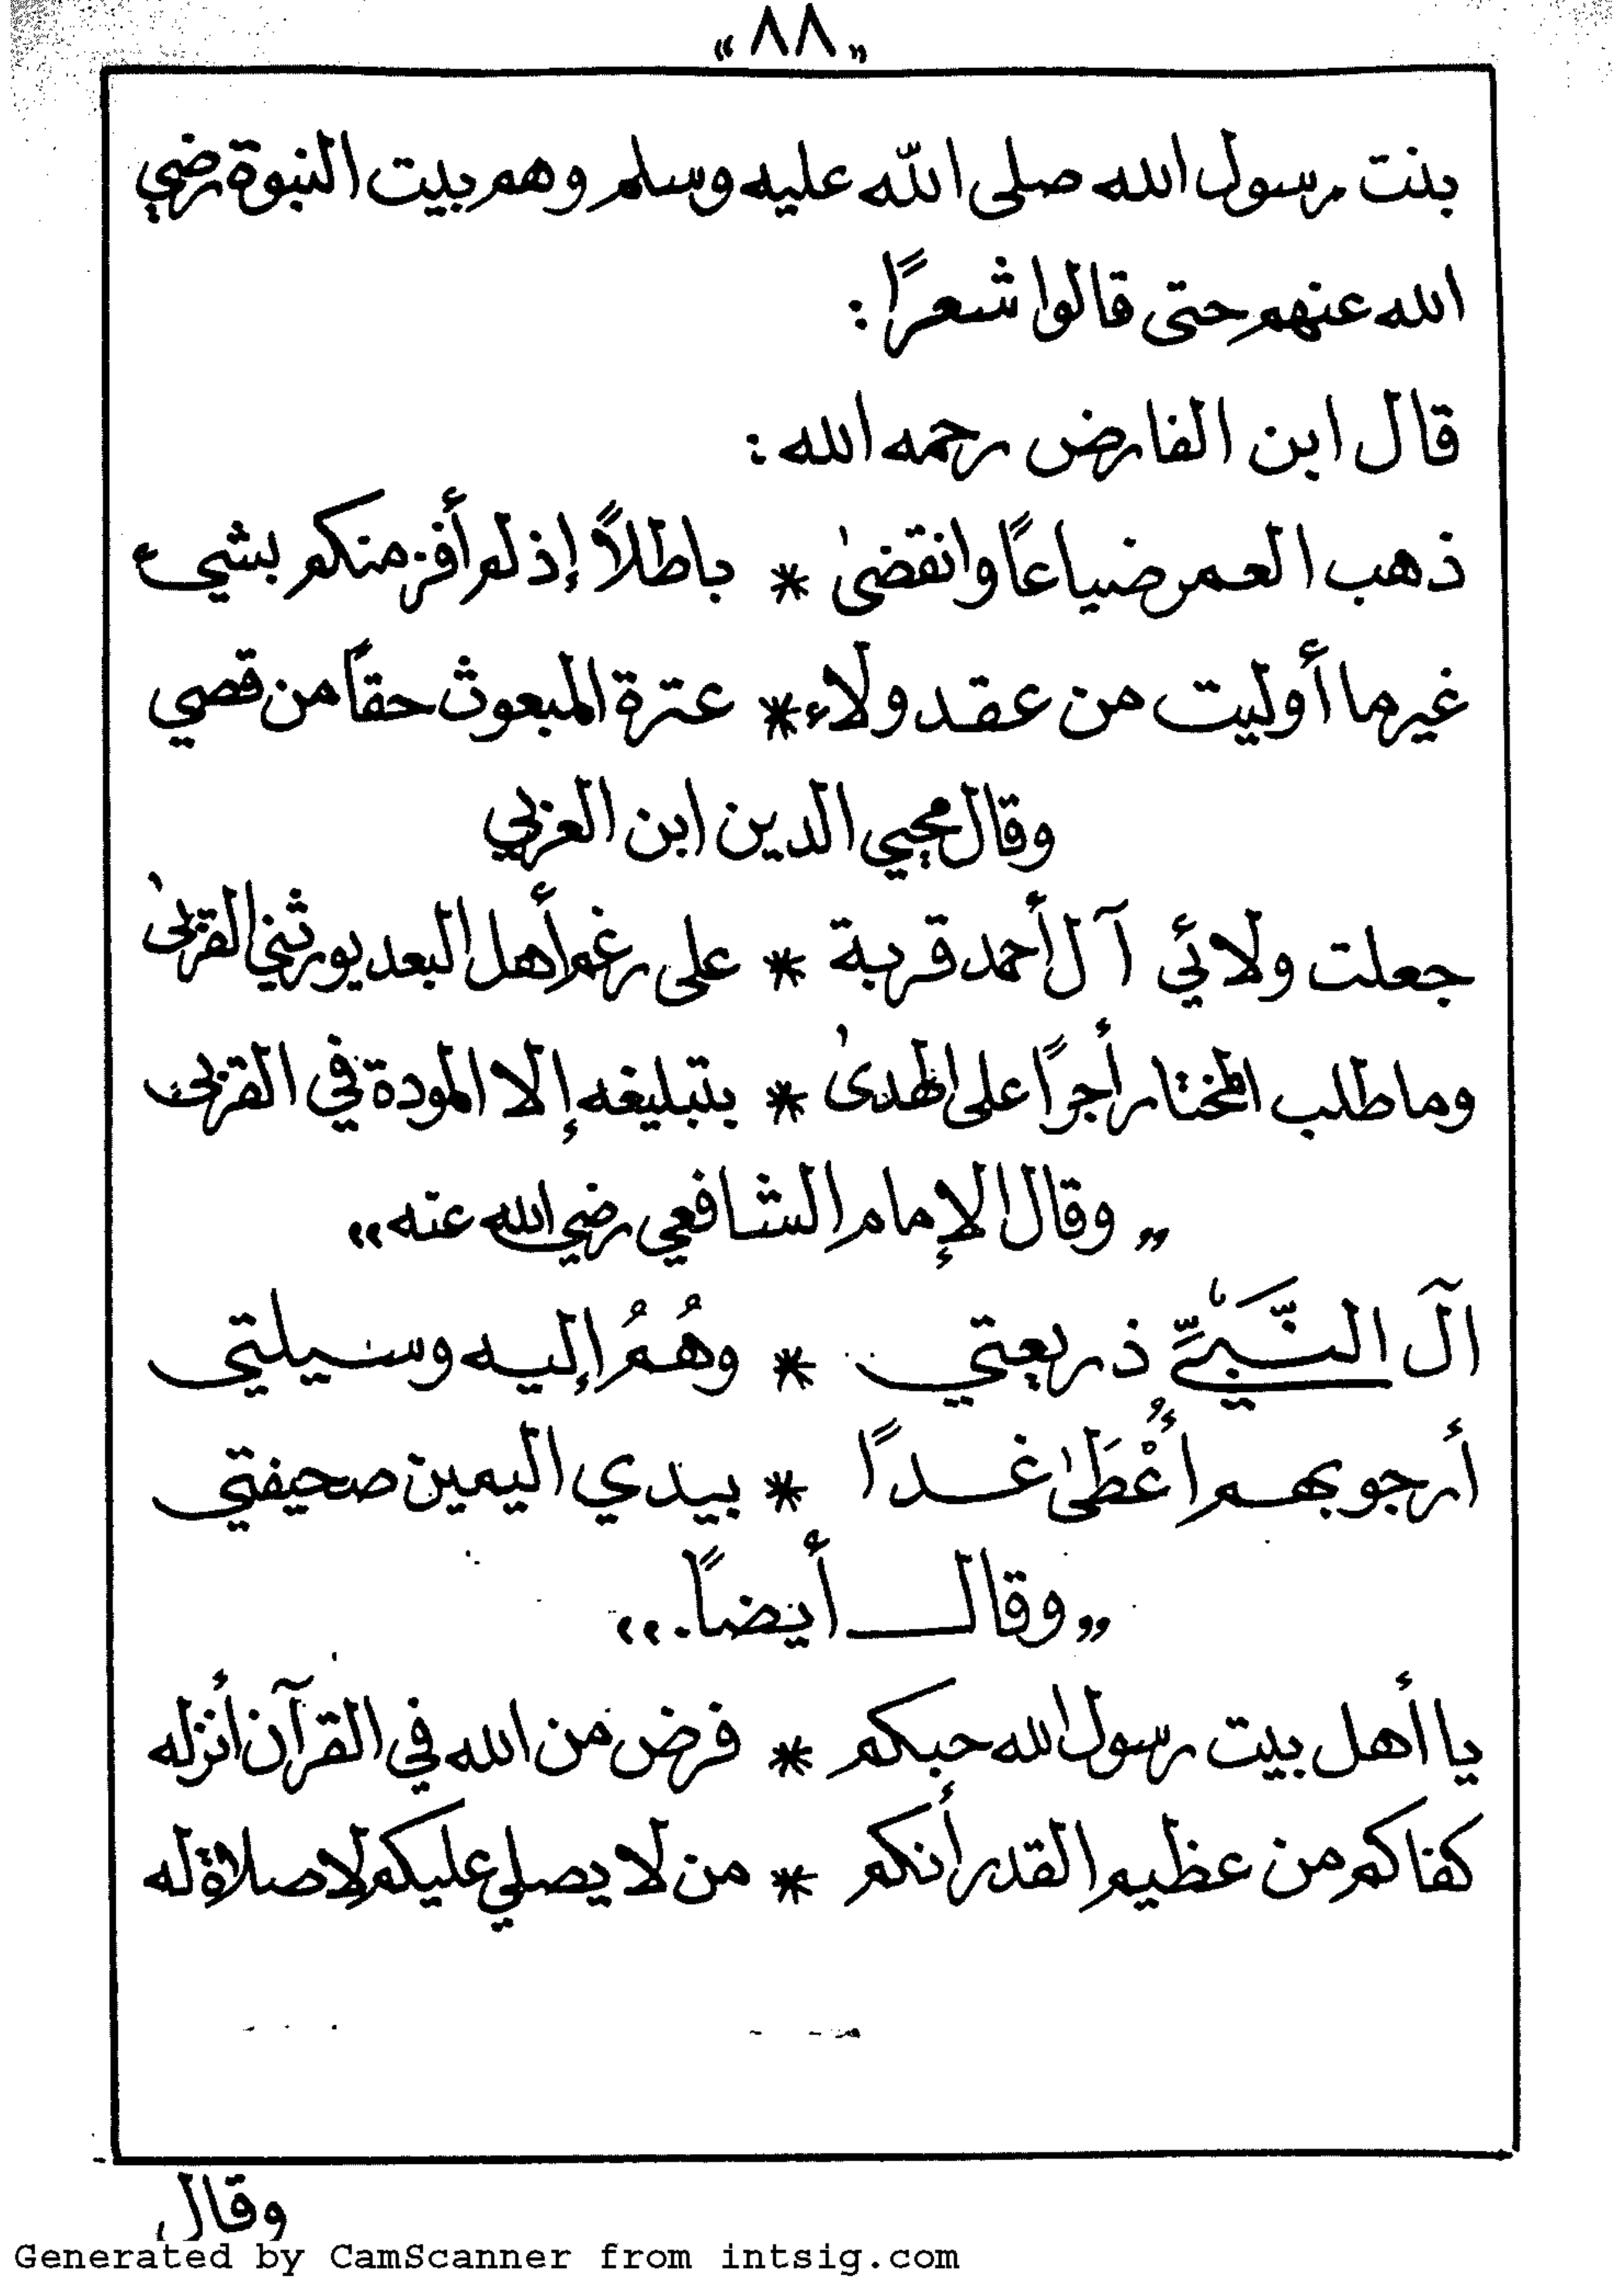 «٨٨»
بنت رسول الله صلى اللّه عليه وسلم وهم بيت النبوة رضي
الله عنهم حتى قالوا شعرًا :
قال ابن الفارض رحمه الله :
ذهب العمر ضياعًا وانقضىٰ * باطلاً إذ لم أفز منكم بشيء
غير ما أوليت من عقد ولاء * عترة المبعوث حقاً من قصي
وقال محيي الدين ابن العزبي
جعلت ولائي آل أحمد قربة * على رغم أهل البعد يورثني القربىٰ
وما طلب المختار أجرًا على الهدىٰ * بتبليغه إلا المودة في القربى
„ وقال الإمام الشافعي رضي الله عنه „
آلَ النَّبَيِّ ذريعتي * وهُمُ إليه وسيلتي
أرجو بهم أُعْطَىٰ غدًا * بيدي اليمين صحيفتي
„ وقال أيضاً.. „
يا أهل بيت رسول الله حبكم * فرض من الله في القرآن أنزله
كفاكم من عظيم القدر أنكم * من لا يصلي عليكم لا صلاة له
وقال
Generated by CamScanner from intsig.com